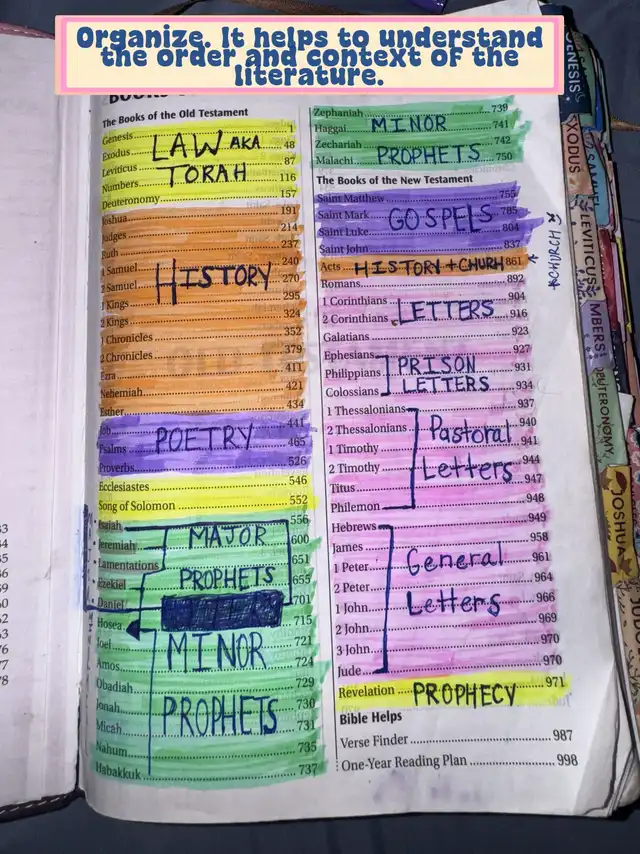 Organize. It helps to understand
the order and context of the
literature.
The Books of the Old Testament
Genesis 1
Exodus 48
Leviticus 87
Numbers 116
Deuteronomy 157
LAW AKA
TORAH
Joshua 191
Judges 214
Ruth 237
1 Samuel 240
2 Samuel 270
1 Kings 295
2 Kings 324
1 Chronicles 352
2 Chronicles 379
Ezra 411
Nehemiah 421
Esther 434
HISTORY
Job 441
Psalms 465
Proverbs 526
POETRY
Ecclesiastes 546
Song of Solomon 552
Isaiah 556
Jeremiah 600
Lamentations 651
Ezekiel 655
Daniel 701
MAJOR
PROPHETS
Hosea 715
Joel 721
Amos 724
Obadiah 729
Jonah 730
Micah 731
Nahum 735
Habakkuk 737
MINOR
PROPHETS
Zephaniah 739
Haggai 741
Zechariah 742
Malachi 750
MINOR
PROPHETS
The Books of the New Testament
Saint Matthew 755
Saint Mark 785
Saint Luke 804
Saint John 837
GOSPELS
Acts 861
HISTORY + CHURH
*CHURCH
Romans 892
1 Corinthians 904
2 Corinthians 916
Galatians 923
LETTERS
Ephesians 927
Philippians 931
Colossians 934
PRISON
LETTERS
1 Thessalonians 937
2 Thessalonians 940
1 Timothy 941
2 Timothy 944
Titus 947
Philemon 948
Pastoral
Letters
Hebrews 949
James 958
1 Peter 961
2 Peter 964
1 John 966
2 John 969
3 John 970
Jude 970
General
Letters
Revelation 971
PROPHECY
Bible Helps
Verse Finder 987
One-Year Reading Plan 998
GENESIS
EXODUS
LEVITICUS
MBERS
DEUTERONOMY
JOSHUA